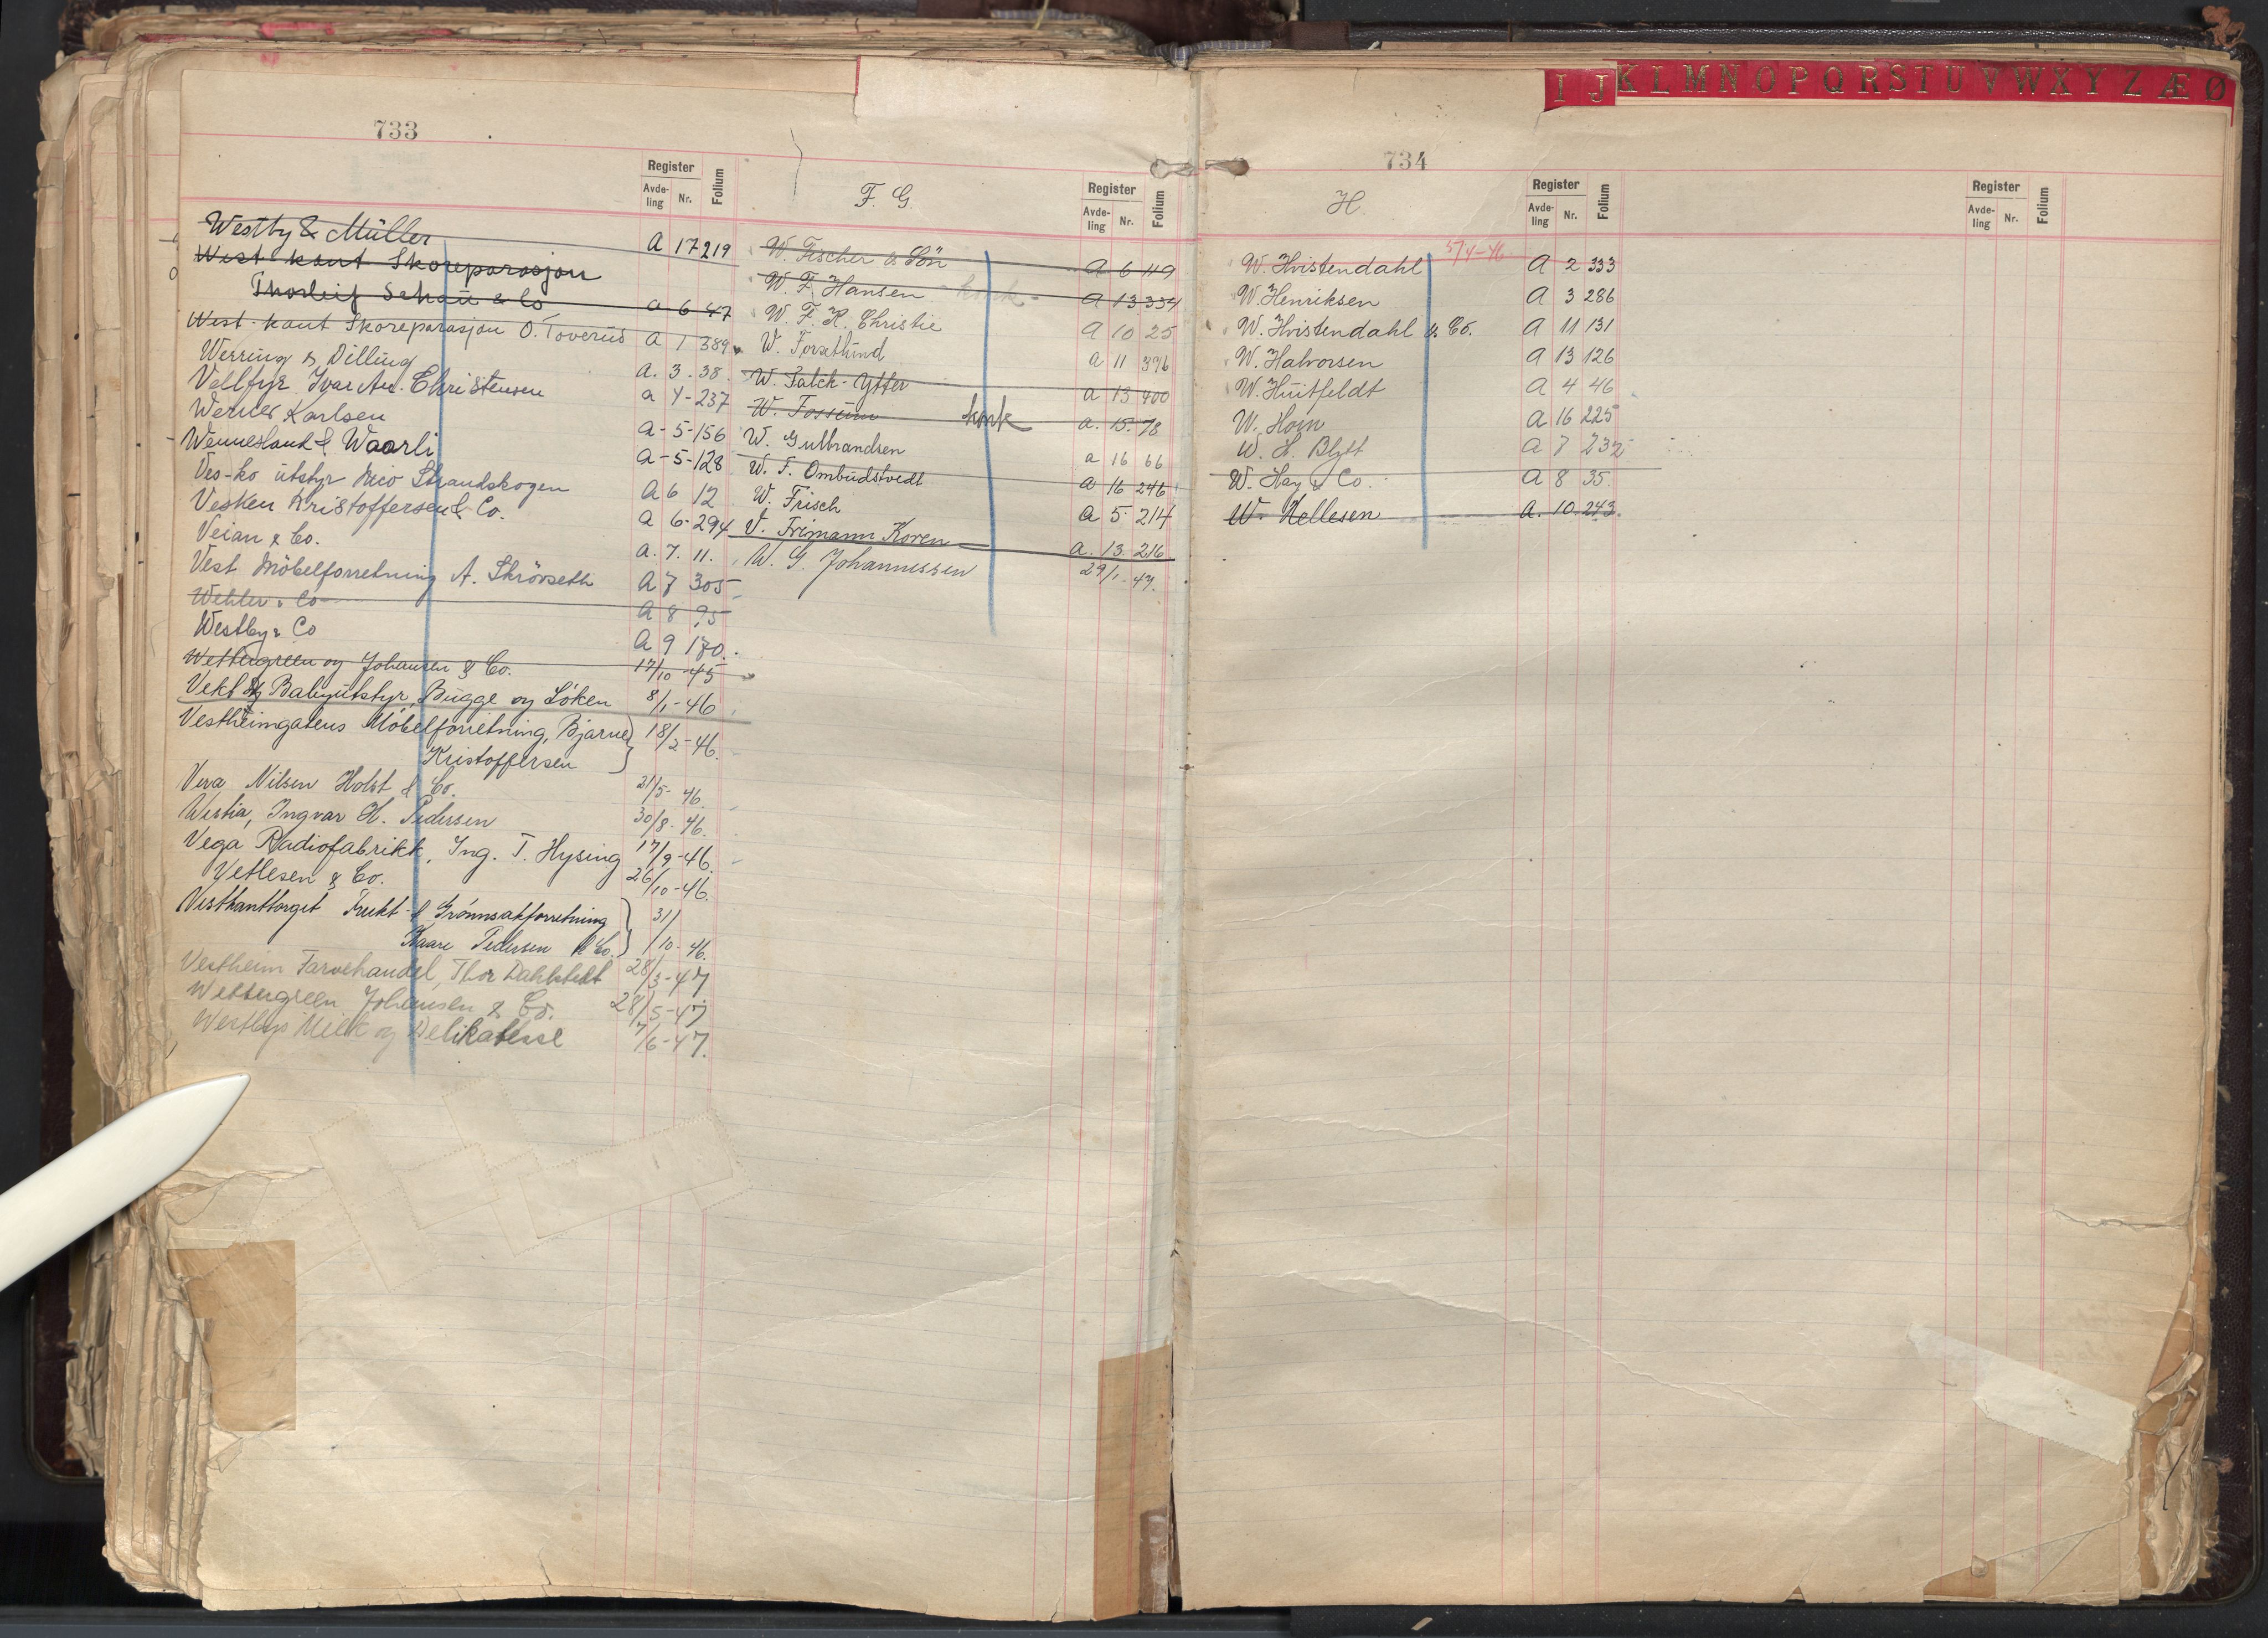 733
Register
Avde-
ling
Nr.
Folium
Westby & Müller A 17 219
West kant Skoreparasjon
Thorleif Schau & Co a 6 47
West-kant Skoreparasjon O. Toverud A 1 389
Werring & Dilling A. 3. 38.
Vellfyr Ivar An. Christensen a 4-237
Werner Karlsen a-5-156
Wennesland & Waarli a-5-128
Ves-ko utstyr Strandskogen A 6 12
Vesken Kristoffersen & Co. a 6-294
Veian & Co. a. 7. 11.
Vest Möbelforretning A. Skrövseth A 7 305
Wehler & Co A 8 95
Westby & Co A 9 170.
Wettergreen og Johansen & Co. 17/10-45
Vekt og Babyutstyr, Bugge og Löken 8/1-46
Vestheimgatens Möbelforretning, Bjarne
Kristoffersen 18/2-46.
Vera Nilsen Holst & Co. 21/5-46.
Westia, Ingvar H. Pedersen 30/8-46.
Vega Radiofabrikk, Ing. T. Hysing 17/9-46.
Vetlesen & Co. 26/10-46.
Vestkanttorget Frukt- & Grönnsakforretning
Kaare Pedersen & Co. 31/10-46.
Vestheim Farvehandel, Thor Dahlstedt 28/3-47
Wettergreen Johansen & Co. 28/5-47
Westbys Melk og Delikatesse 7/6-47.
F. G.
Register
Avde-
ling
Nr.
Folium
W. Fischer & Sön A 6 119
W. F. Hansen konk A 13 354
W. F. K. Christie A 10 25
W. Forsetlund a 11 396
W. Falck-Ytter a 13 400
W. Fossum konk a. 15. 78
W. Gulbrandsen a 16 66
W. F. Ombudstvedt a 16 246
W. Frisch a 5 214
W. Frimann Koren a. 13. 216
W. G. Johannessen 29/1-47.
734
H.
Register
Avde-
ling
Nr.
Folium
W. Hvistendahl 5/4-46 A 2 333
W. Henriksen A 3 286
W. Hvistendahl & Co. A 11 131
W. Halvorsen A 13 126
W. Huitfeldt A 4 46
W. Horn A 16 225
W. H. Blytt A 7 232
W. Hay & Co. A 8 35.
W. Hellesen A. 10. 243.
Register
Avde-
ling
Nr.
Folium
I J K L M N O P Q R S T U V W X Y Z Æ Ø